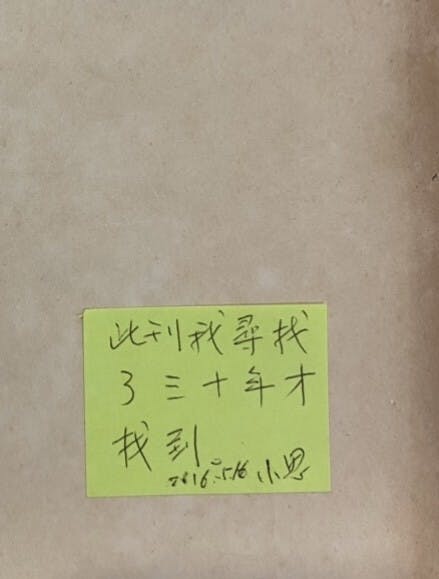 此刊我尋找
了三十年才
找到
2016.5.16 小思